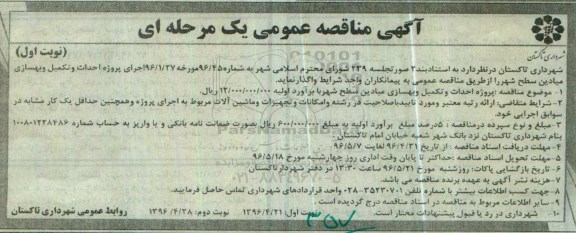 آگهی مناقصه عمومی یک مرحله ای
(نوبت اول)
شهرداری تاکستان
شهرداری تاکستان درنظردارد به استنادبند۲ صورتجلسه ۴۳۹ شورای محترم اسلامی شهر به شماره۹۶/۴۵مورخه ۹۶/۱/۲۷اجرای پروژه احداث وتکمیل وبهسازی
میادین سطح شهررا ازطریق مناقصه عمومی به پیمانکاران واجد شرایط واگذارنماید.
۱- موضوع مناقصه :پروژه احداث وتکمیل وبهسازی میادین سطح شهربا برآورد اولیه ۱۲/۰۰۰/۰۰۰/۰۰۰ ریال
۲- شرایط متقاضی: ارائه رتبه معتبر ومورد تاییدباصلاحیت در رشته وامکانات وتجهیزات وماشین آلات مربوط به اجرای پروژه وهمچنین حداقل یک کار مشابه در
سوابق اجرایی خود.
۳- مبلغ و نوع سپرده درمناقصه : ۵درصد مبلغ برآورد اولیه به مبلغ ۶۰۰/۰۰۰/۰۰۰ ریال بصورت ضمانت نامه بانکی و یا واریز به حساب شماره ۱۰۰۸۰۱۲۲۸۴۸۶
بنام شهرداری تاکستان نزد بانک شهر شعبه خیابان امام تاکستان.
۴- مهلت دریافت اسناد مناقصه : از تاریخ ۹۶/۴/۳۱ لغایت ۹۶/۵/۷
۵- مهلت تحویل اسناد مناقصه :حداکثر تا پایان وقت اداری روز چهارشنبه مورخ ۹۶/۵/۱۸
۶- تاریخ بازگشایی پاکات: روزشنبه مورخ ۹۶/۵/۲۱ ساعت ۱۳:۳۰ در دفتر شهردارتاکستان
۷- هزینه نشر آگهی به عهده برنده مناقصه می باشد.
۸- جهت کسب اطلاعات بیشتر با شماره تلفن ۳۵۲۳۰۷۰۱-۰۲۸ واحد قراردادهای شهرداری تماس حاصل فرمایید.
۹- سایر اطلاعات مربوط به مناقصه در اسناد مناقصه درج گردیده است.
۱۰- شهرداری در رد یا قبول پیشنهادات مختار است.
نوبت اول: ۱۳۹۶/۴/۲۱ نوبت دوم: ۱۳۹۶/۴/۲۸
روابط عمومی شهرداری تاکستان